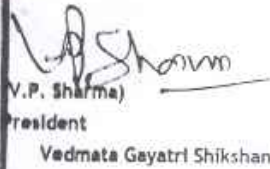 V.P. Sharma
(V.P. Sharma)
President
Vedmata Gayatri Shikshan